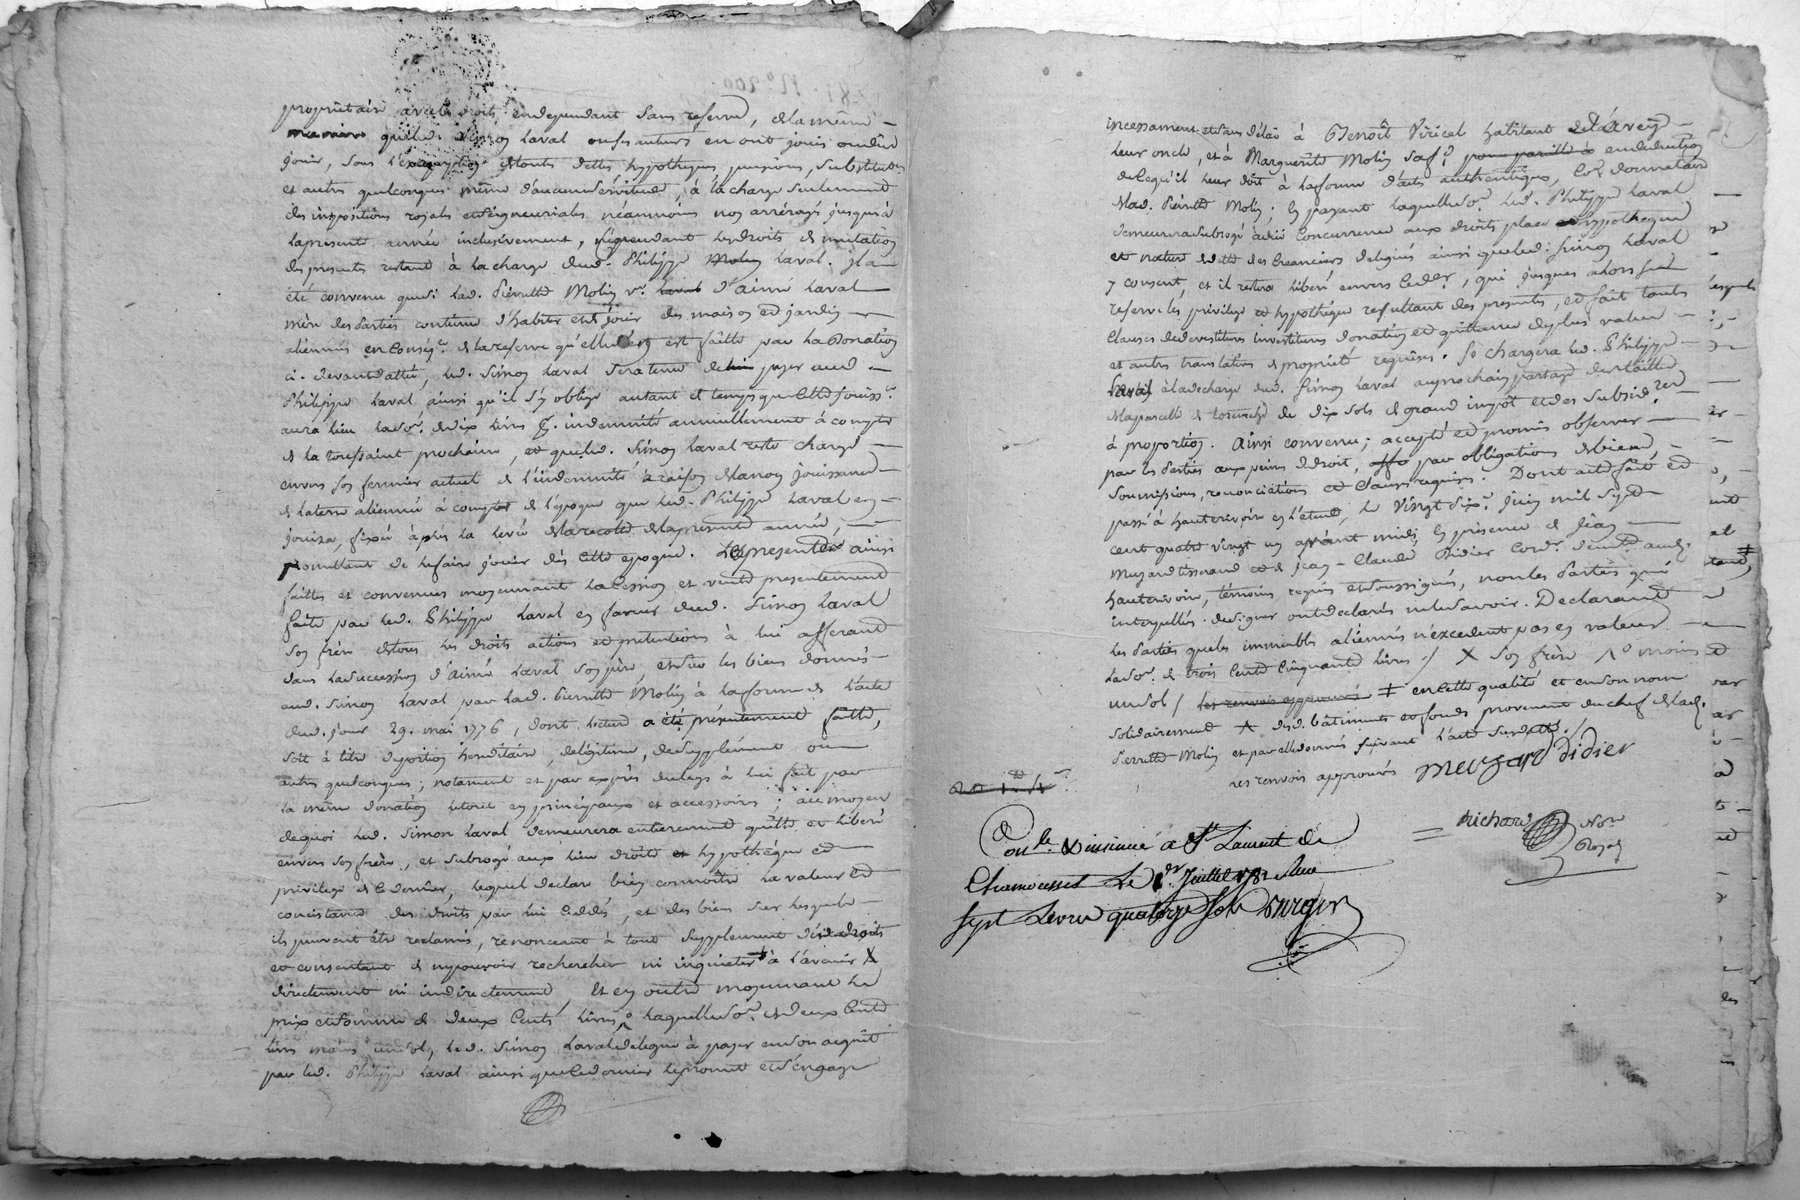 propriétaire avec droits independant sans reserve, et la même
maniere que led. Simon Laval en ont joui ou dû
jouir, sous l'exemption de toutes dettes hypotheques, pensions, substitutions
et autres quelconques même d'aucune servitude, à la charge seulement
des impositions royales et seigneuriales néanmoins nos arrérages jusqu'à
la presente année inclusivement, les droits de mutation
des presents restant à la charge dud. Philippe Molin Laval. Il a
été convenu que si lad. Pierrette Molin v.e d'aimé Laval
mère des Parties continue d'habiter et de jouir des maison et jardin
aliennés en conséq.ce de la reserve qu'elle en est faitte par la Donation
ci-devant dattée, led. Simon Laval sera tenu de payer aud.
Philippe Laval ainsi qu'il s'y oblige autant de temps que cette jouiss.ce
aura lieu la so.e de dix livres indemnité annuellement à compter
de la toussaint prochaine, et que led. Simon Laval reste chargé
envers son fermier actuel de l'indemnité à raison de la non jouissance
de la terre alienné à compter de l'époque que led. Philippe Laval en
jouira, fixée après la levée de la recolte de la presente année,
promettant de le faire jouir dès cette epoque. Les presentes ainsi
faittes et convenues moyennant la cession et vente presentement
faite par led. Philippe Laval en faveur dud. Simon Laval
son frère de tous les droits actions et pretentions à lui afferant
dans la succession d'aimé Laval son père et sur les biens donnés
aud. Simon Laval par lad. Pierrette Molin à la forme de l'acte
dud. jour 29. mai 1776, dont lecture a été présentement faitte,
soit à titre de portion hereditaire, de légitime, de supplément ou
autres quelconques; notament et par exprès du legs à lui fait par
la même donation le tout en principaux et accessoires; au moyen
de quoi led. Simon Laval demeurera entierement quitte et liberé
envers son frère, et subrogé aux lieu droits et hypothéque et
privilege de ce dernier, lequel declare bien connoître la valeur et
consistance des droits par lui cédés, et des biens sur lesquels
ils peuvent être reclamés, renonceant à tout supplement desd. droits
et consentant de ne pouvoir rechercher ni inquieter à l'avenir X
directement ni indirectement / Et en outre moyennant le
prix et somme de deux cents livres laquelle so.e de deux cents
livres moins un sol, led. Simon Laval delegue à payer en son acquit
par led. Philippe Laval ainsi que ce dernier le promet et s'engage
incessament et sans délai à Benoît Viricel habitant
leur oncle, et à Marguerite Molin sa f.e en deduction
de ce qu'il leur doit à la forme d'acte authentique, donnataire
de lad. Pierrette Molin; en payant laquelle so.e led. Philippe Laval
demeurera subrogé à dûe concurrence aux droits place et hypotheque
et nature de dette des Creanciers delegués ainsi que led. Simon Laval
y consent, et il restera liberé envers ce d.er, qui jusques alors fait
reserve les privilege et hypothéque resultant des presentes, et fait toutes
clauses de devestitures investitures donation et quittance de plus value
et autres translation de propriété requises. Se chargera led. Philippe
Laval à la decharge dud. Simon Laval au prochain partage de taille
de dix sols de grand impôt et des subsid.res
à proportion. Ainsi convenu; accepté et promis observer
par les Parties aux peines de droit, par obligations de biens
soumissions, renonciations et clauses requises. Dont acte fait et
passé à hauterivoire en l'étude, le vingt six.e Juin mil sept
cent quatre vingt un avant midi, en présence de Jean
Muzard tisserand et de Jean-Claude Didier cord.r demeur.t aud.
hauterivoire, témoins requis et soussignés, non les Parties qui
interpellés de signer ont declarés ne le savoir. Declarant
les Parties que les immeubles aliennés n'excedent pas en valeur
la so.e de trois cents cinquante livres ./ X son frère moins
un sol / les renvois approuvés ‡ en cette qualité et en son nom
solidairement ⁁ desd. bâtiments et fonds provenant du chef de lad.
Pierrette Molin et par elle donnés suivant l'acte susdatté./
les renvois approuvés Muzard Didier
Richard No.re
Royal
Con.le & insinué à St Laurent de
Chamousset le 1.er Juillet 1781 Reçu
sept livres quatorze sols